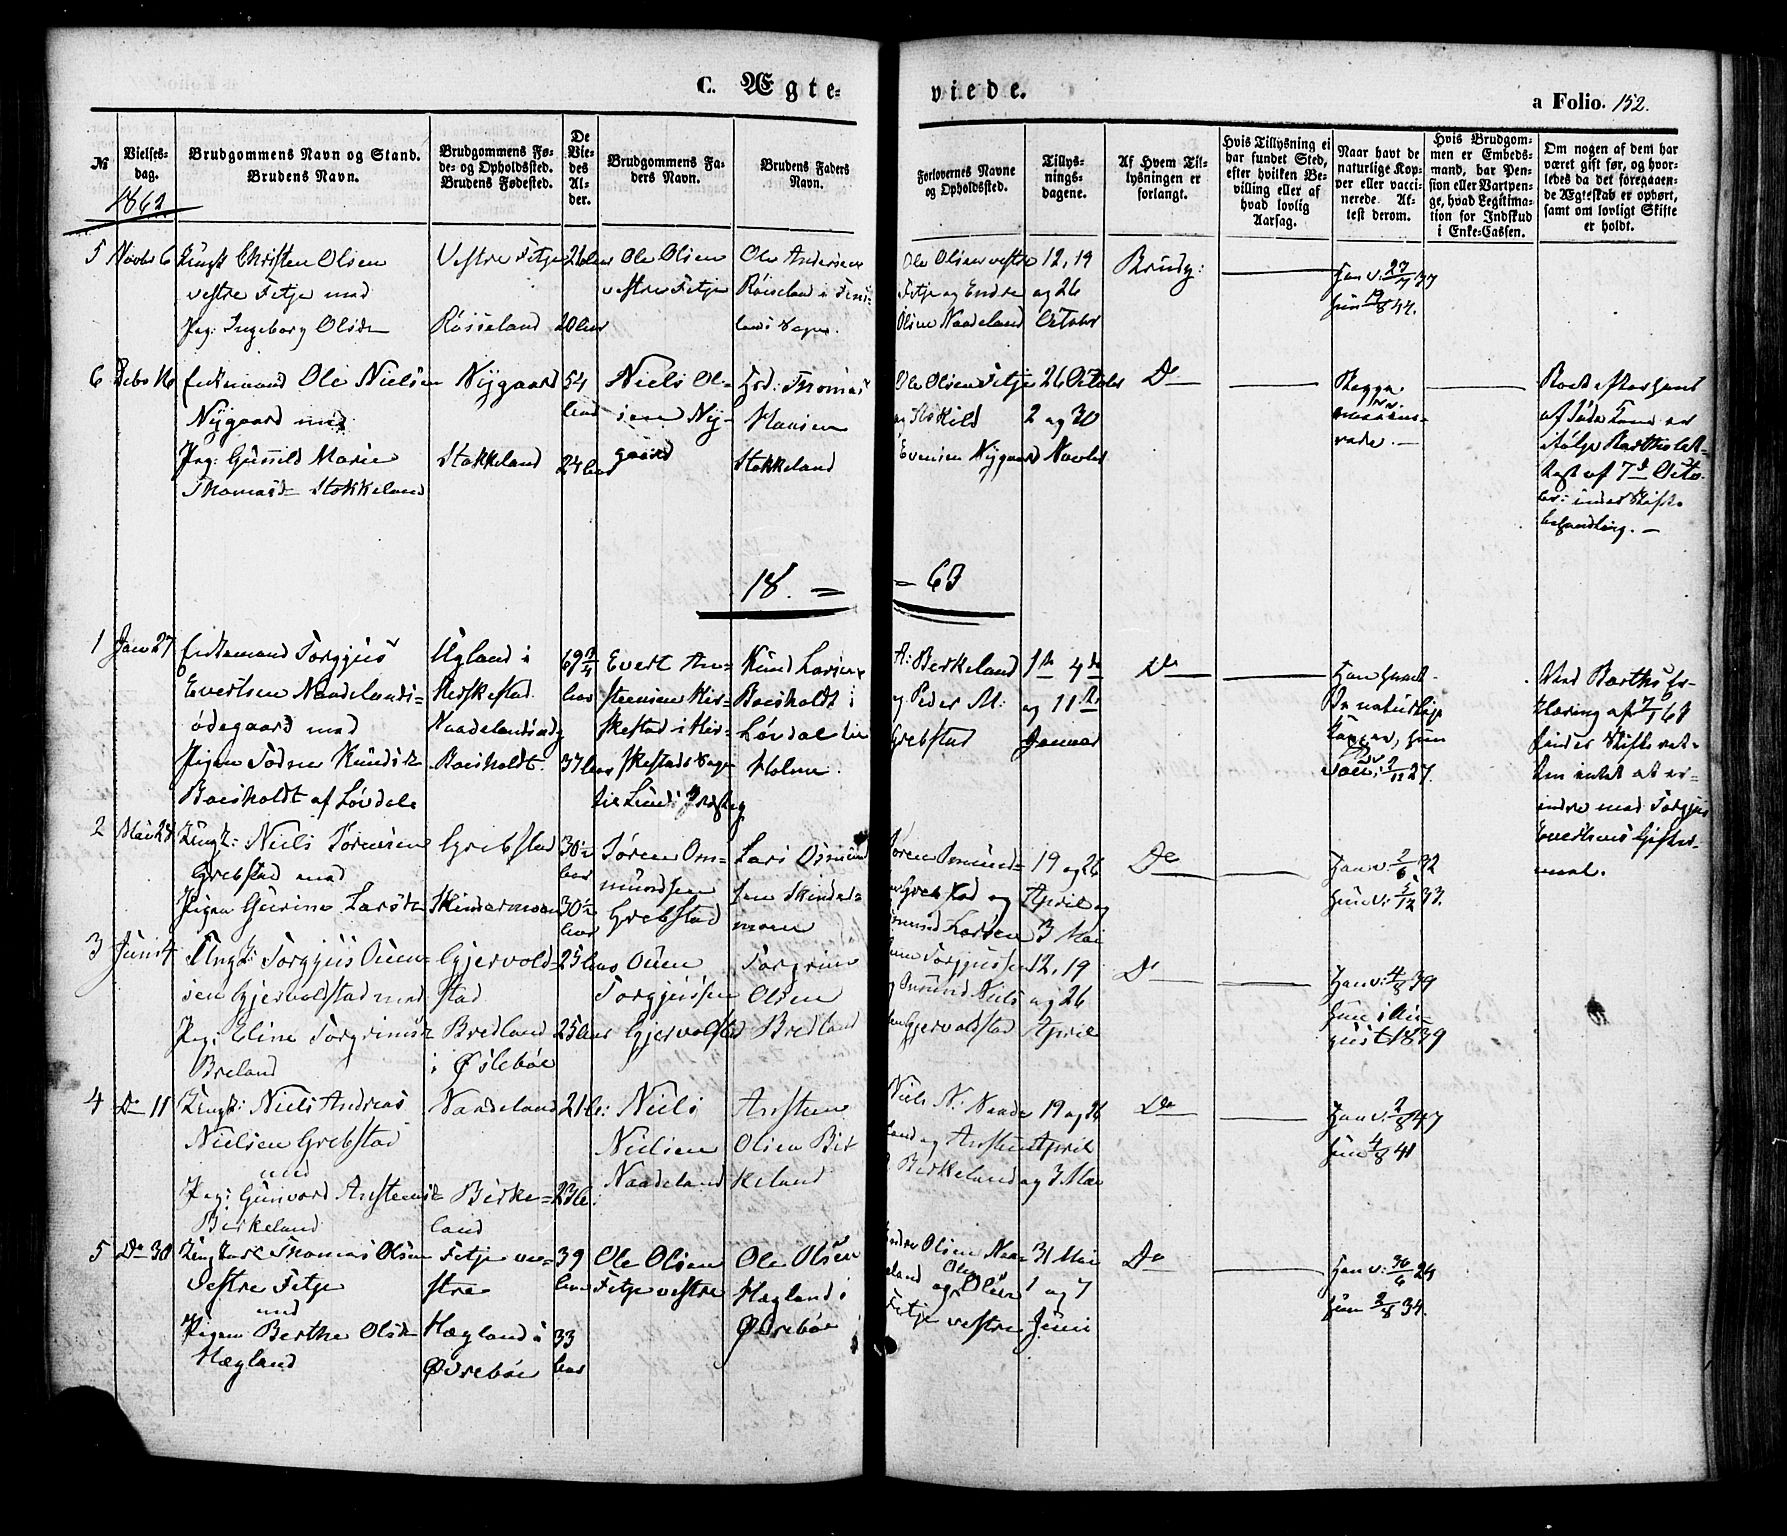 C. Ægte-
viede.
a Folio. 152.
№
Vielses-
dag.
Brudgommens Navn og Stand.
Brudens Navn.
Brudgommens Fø-
de- og Opholdssted.
Brudens Fødested.
De
Vie-
des
Al-
der.
Brudgommens Fa-
ders Navn.
Brudens Faders
Navn.
Forlovernes Navne
og Opholdssted.
Tillys-
nings-
dagene.
Af Hvem Til-
lysningen er
forlangt.
Hvis Tillysning ei
har fundet Sted,
efter hvilken Be-
villing eller af
hvad lovlig
Aarsag.
Naar havt de
naturlige Kop-
per eller vacci-
nerede. At-
test derom.
Hvis Brudgom-
men er Embeds-
mand, har Pen-
sion eller Vartpen-
ge, hvad Legitima-
tion for Indskud
i Enke-Cassen.
Om nogen af dem har
været gift før, og hvor-
ledes da det foregaaen-
de Ægteskab er ophørt,
samt om lovligt Skifte
er holdt.
1862
5 Novbr 6
Ungk Christen Olsen
vestre Fitje med
Pig: Ingeborg Olsdr
Vestre Fitje
Røiseland
26 Aar
20 Aar
Ole Olsen
vestre Fitje
Ole Andersen
Røiseland i
lands Sogn.
Ole Olsen vestre
Fitje og Endre
Olsen Naadeland
12, 19
og 26
October
Brudg:
Han v. 27/7 37
Hun 19/8 44.
6 Debr 16
Enkemand Ole Nielsen
Nygaard med
Pig: Gunild Marie
Thomasdr Stokkeland
Nygaard
Stokkeland
54
Aar
24 Aar
Niels Ol-
sen Ny-
gaard
Thomas
Hansen
Stokkeland
Ole Olsen Fitje
og Askild
Evensen Nygaard
26 October
2 og 30
Novbr
Do
Begge
vaccine-
rede.
af 7de Octo-
ber: under Skifte-
behandling.
18. = = 63
1 Jan 27
Enkemand Torgjus
Evertsen Naadelands-
ødegaard med
Pigen Todne Knudsdr
Boeiholdt af Løvdale
Ugland i
Herskestad
Naadelandsødg
Boeiholdt.
69 3/4
Aar
37 Aar
Evert An-
steensen Her-
skestad i Her-
skestads Sogn
Knud Larsen
Boeiholdt i
Løvdal til
Holme.
A: Berkeland
og Peder M:
Grebstad
1te 4de
og 11te
Januar
Do
Han havt
De naturlige
Kopper, Hun
vac: 2/11 27.
2 Mai 28
Ungk: Niels Sørensen
Grebstad med
Pigen Gurine Larsdr
Grebstad
Skindermoen
30 1/2
Aar
30 1/2
Aar
Søren Os-
mundsen
Grebstad
Lars Osmund
sen Skinder-
moen
Søren Osmund-
sen Grebstad og
Osmund Larsen
19 og 26
April og
3 Mai
Do
Han v. 2/6 32
Hun v: 5/12 33.
3 Juni 4
Ungk: Torgjus Ouen-
sen Gjervoldstad med
Pig: Eline Torgrimsdr
Breland
Gjervold-
stad
Bredland
i Øslebøe
25 Aar
25 Aar
Ouen
Torgjussen
Gjervoldstad
Torgrim
Olsen
Bredland
Ouen Torgjussen
og Osmund Niels
sen Gjervoldstad
12, 19
og 26
April
Do
Han v: 4/8 39
Hun i Au-
gust 1839
4 Do 11
Ungk: Niels Andreas
Nielsen Grebstad
med
Pig: Gunvord Anstensdr
Birkeland
Naadeland
Birke-
land
21 A:
23 A:
Niels
Nielsen
Naadeland
Ansten
Olsen Bir
keland
Niels N: Naade
land og Ansten
O Birkeland
19 og 26
April
og 3 Mai
Do
Han v. 2/8 47
Hun 4/8 41
5 Do 30
Ungkarl Thomas Olsen
Vestre Fitje
med
Pigen Berthe Olsdr
Hægland
Fitje ve-
stre
Hægland i
Øvrebøe
39
Aar
33
Aar
Ole Olsen
Fitje vestre
Ole Olsen
Hægland i
Øvrebøe
Endre Olsen Naa-
deland og Ole Olsen
Fitje vestre
31 Mai
1 og 7
Juni
Do
Han v: 30/6 24
Hun 2/8 34.